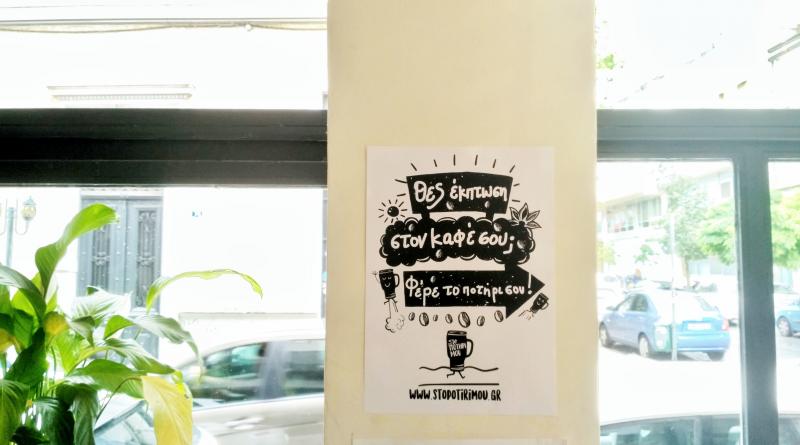 Θες έκπτωση
στον καφέ σου;
Φέρε το ποτήρι σου!
ΣΤΟ
ΠΟΤΗΡΙ
ΜΟΥ
WWW.STOPOTIRIMOU.GR